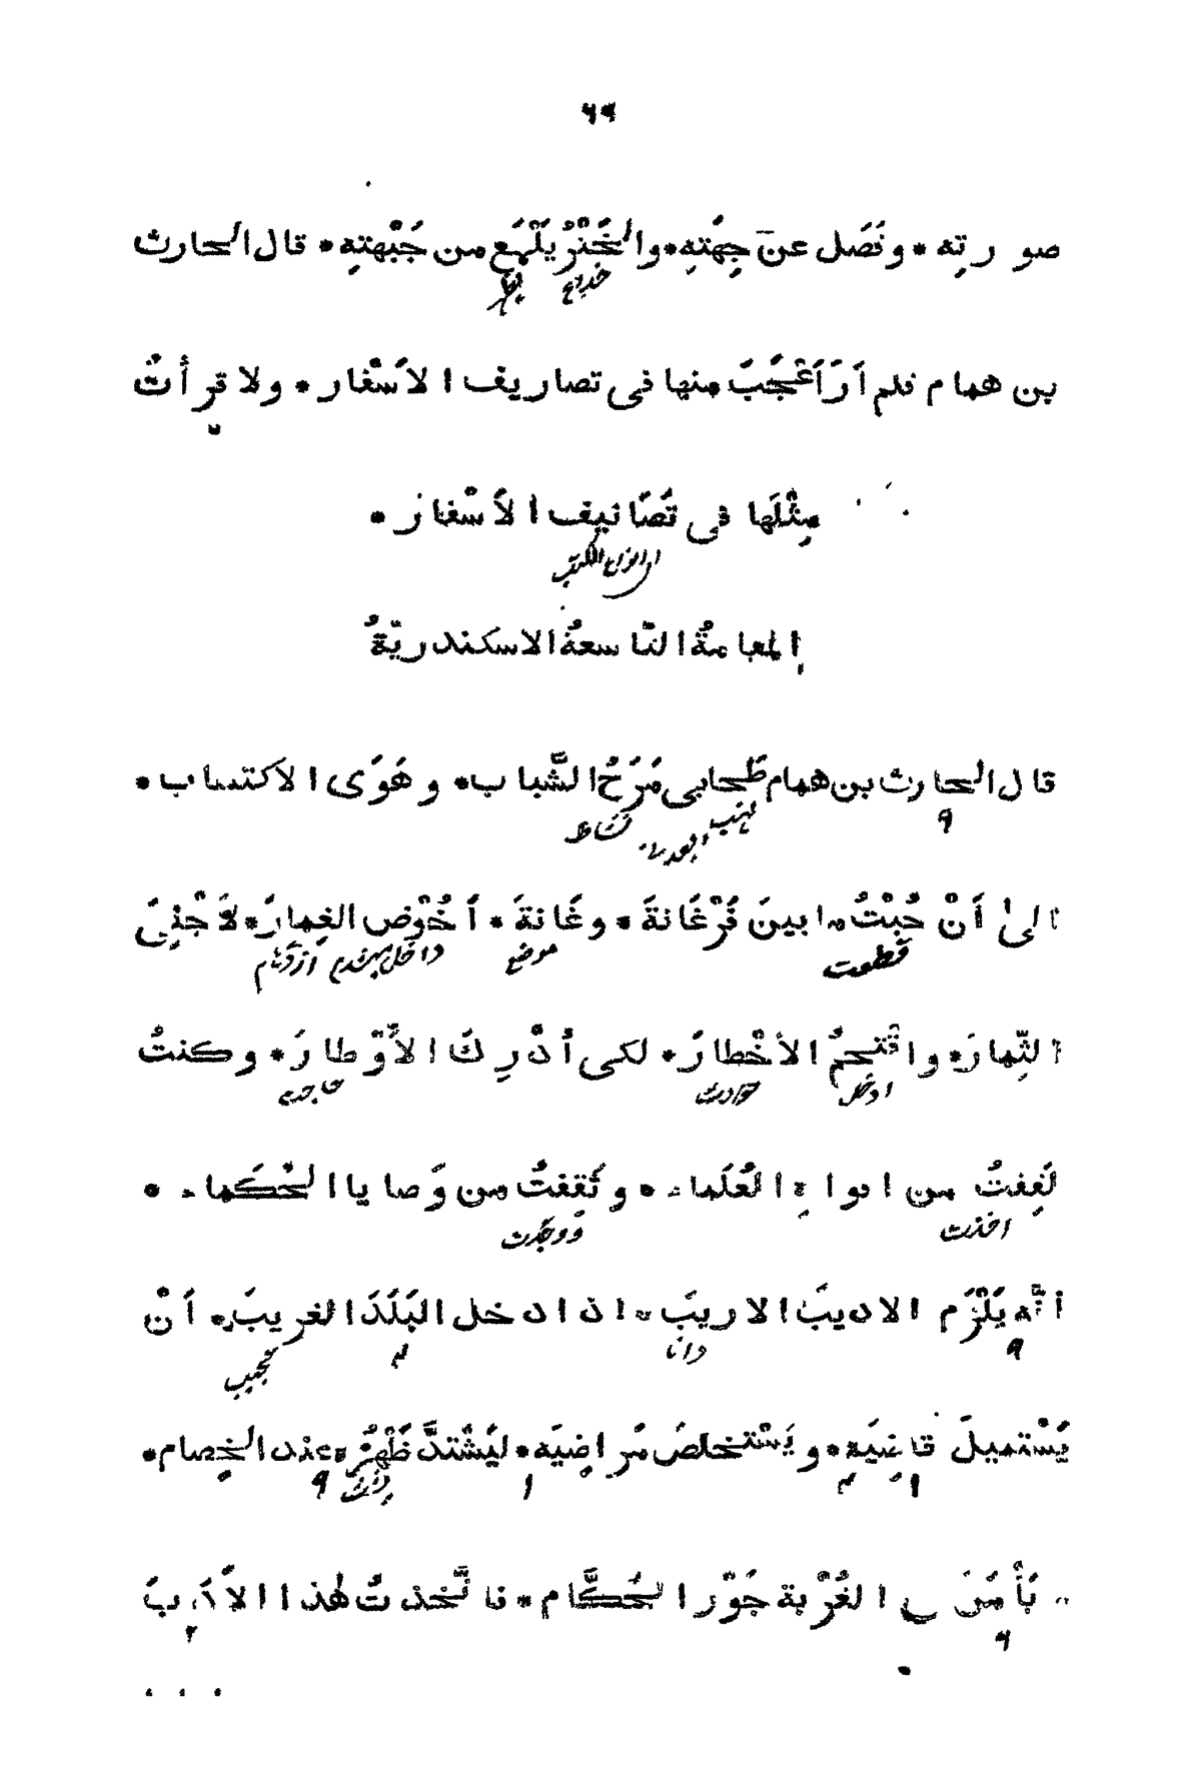 ٦٩
صورتِه * ونَصَل عن جِهَتِه * والخَتْرُ يَلْمَع من جَبْهتِه * قال الحارث
بن همام فلم أَرَ أَعْجَبَ منها فى تصاريف الاَسْفار * ولا قرأتُ
مِثْلَها فى تَصَانيف الاَسْفار *
المقامةُ التّاسعةُ الاسكندريّةُ
قال الحارث بن همام طَحابى مَرَحُ الشَّباب * وهَوَى الاكتساب *
الىٰ اَنْ جُبْتُ ما بينَ فَرْغَانةَ * وغَانةَ * اَخُوْض الغِمارَ * لاَجْنِىَ
الثِّمارَ * واقْتَحِمُ الأخْطارَ * لكى اُدْرِكَ الاَوْطارَ * وكنتُ
لَقِفتُ من افواهِ العُلَماء * وثَقِفتُ من وَصايا الحُكَماء *
أنّه يَلْزَم الاديبَ الاريبَ * اذا دخل البَلَدَ الغريبَ * اَنْ
يَسْتميلَ قاضيَه * ويَسْتخلصَ مَراضيَه * ليَشْتدَّ ظَهْرُه عند الخِصام *
ويَأْمَنَ فى الغُرْبة جَوْرَ الحُكَّام * فاتَّخذتُ هٰذا الاَدَبَ